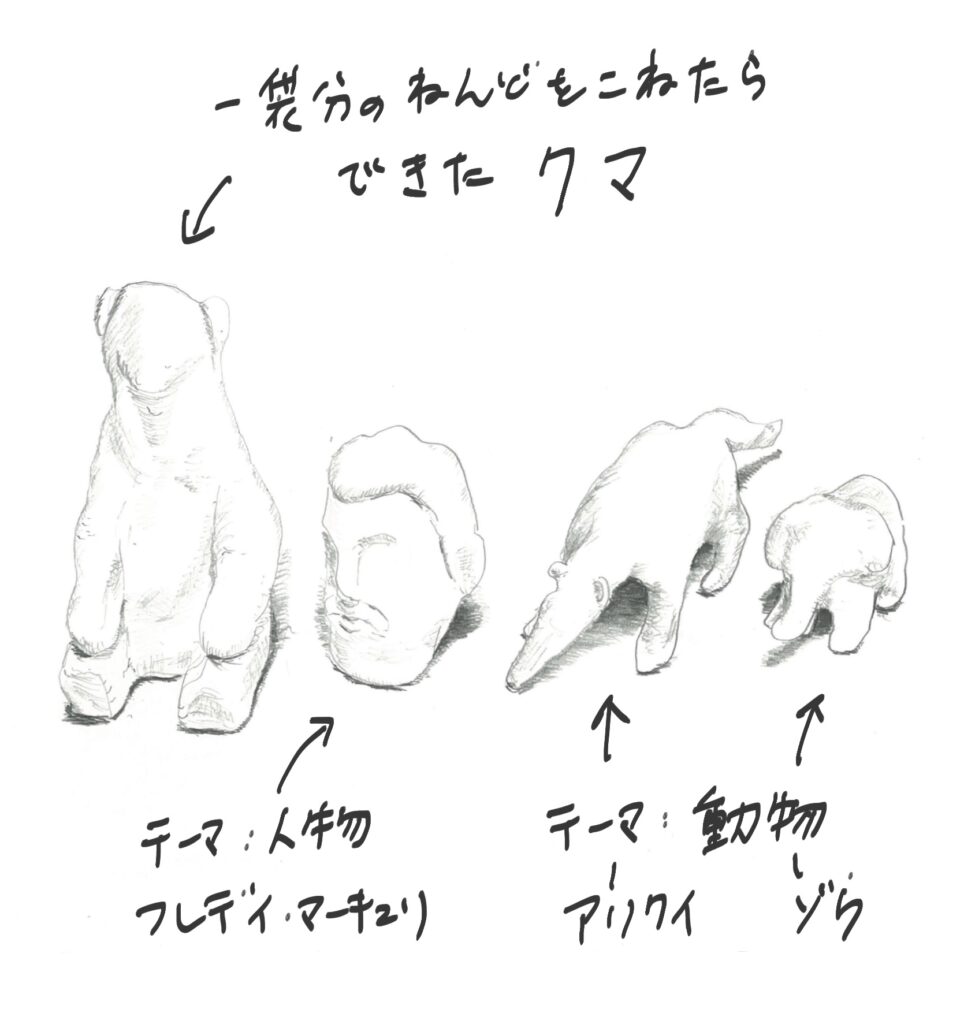 一袋分のねんどをこねたら
できたクマ
テーマ：人物
フレディ・マーキュリ
テーマ：動物
アリクイ
ゾウ